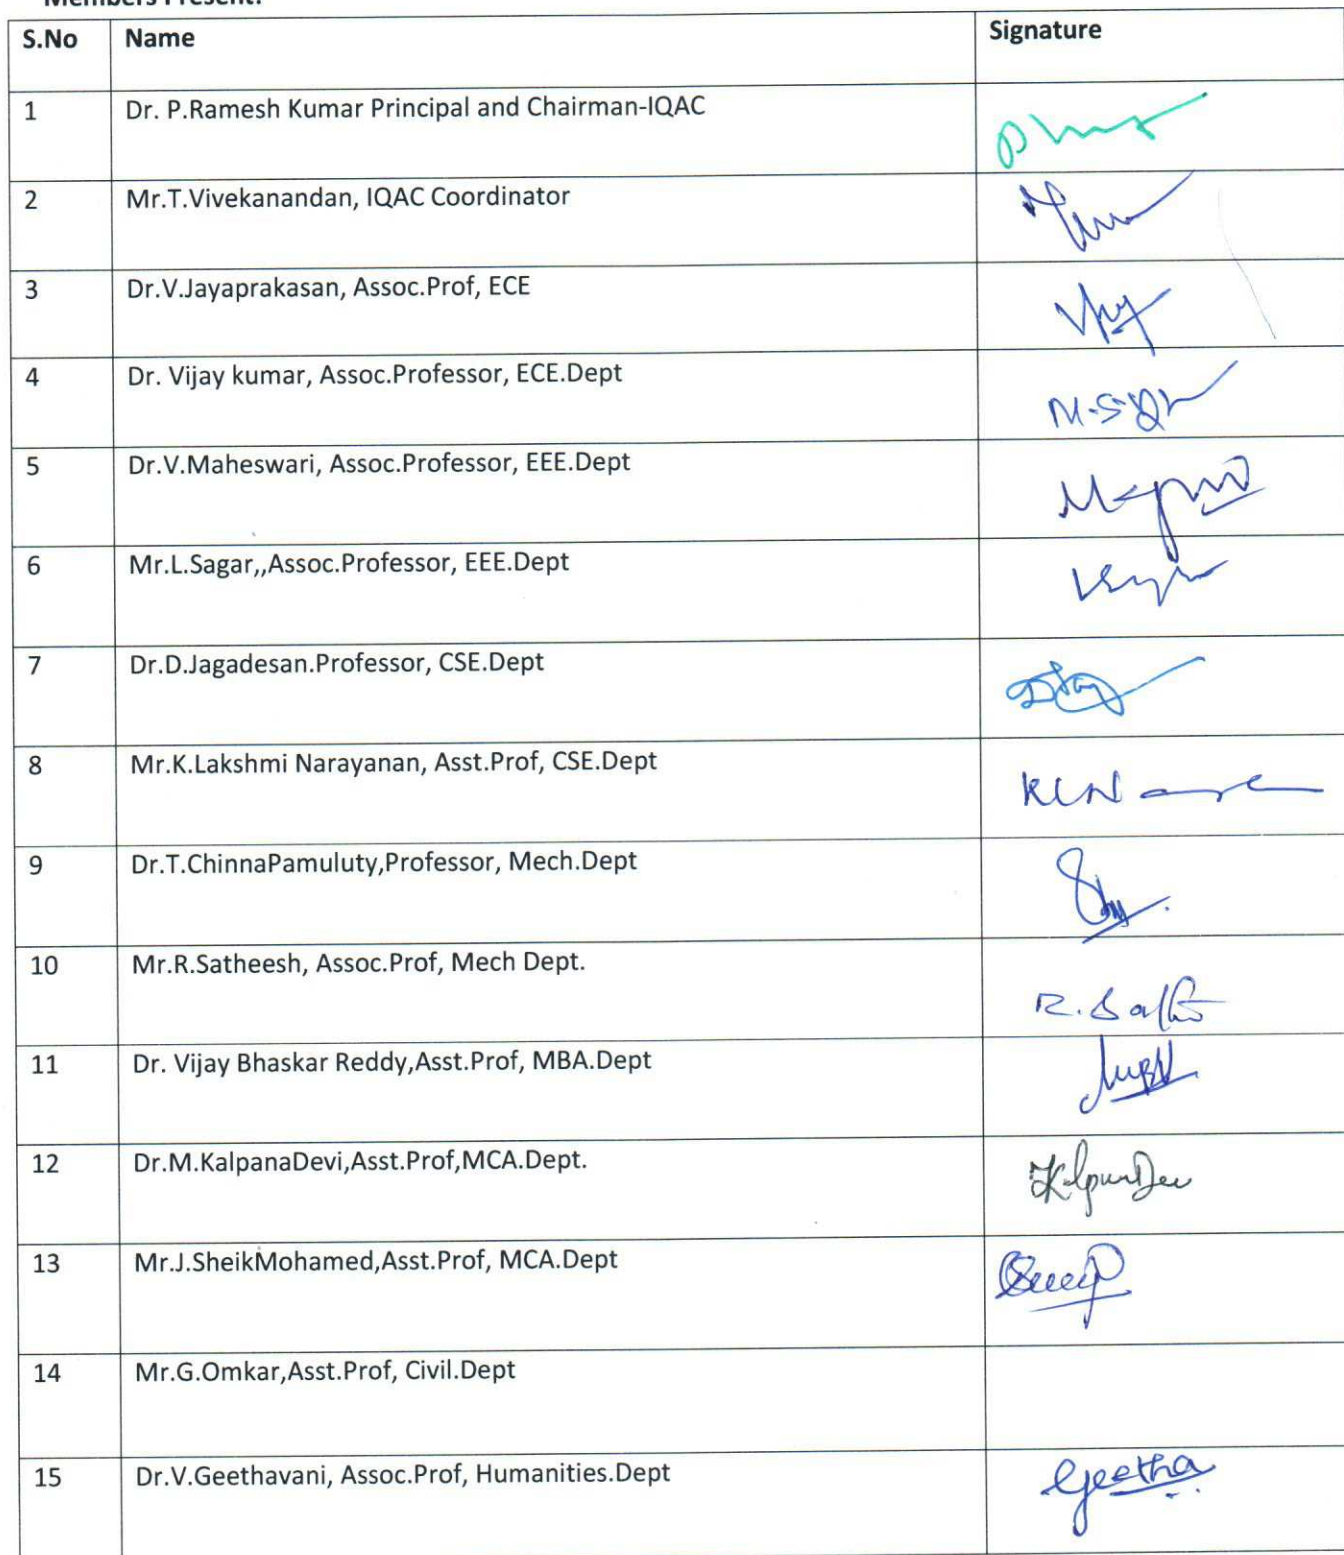 Members Present:
S.No Name Signature
1 Dr. P.Ramesh Kumar Principal and Chairman-IQAC
2 Mr.T.Vivekanandan, IQAC Coordinator
3 Dr.V.Jayaprakasan, Assoc.Prof, ECE
4 Dr. Vijay kumar, Assoc.Professor, ECE.Dept
5 Dr.V.Maheswari, Assoc.Professor, EEE.Dept
6 Mr.L.Sagar,,Assoc.Professor, EEE.Dept
7 Dr.D.Jagadesan.Professor, CSE.Dept
8 Mr.K.Lakshmi Narayanan, Asst.Prof, CSE.Dept
9 Dr.T.ChinnaPamuluty,Professor, Mech.Dept
10 Mr.R.Satheesh, Assoc.Prof, Mech Dept.
11 Dr. Vijay Bhaskar Reddy,Asst.Prof, MBA.Dept
12 Dr.M.KalpanaDevi,Asst.Prof,MCA.Dept.
13 Mr.J.SheikMohamed,Asst.Prof, MCA.Dept
14 Mr.G.Omkar,Asst.Prof, Civil.Dept
15 Dr.V.Geethavani, Assoc.Prof, Humanities.Dept Geetha